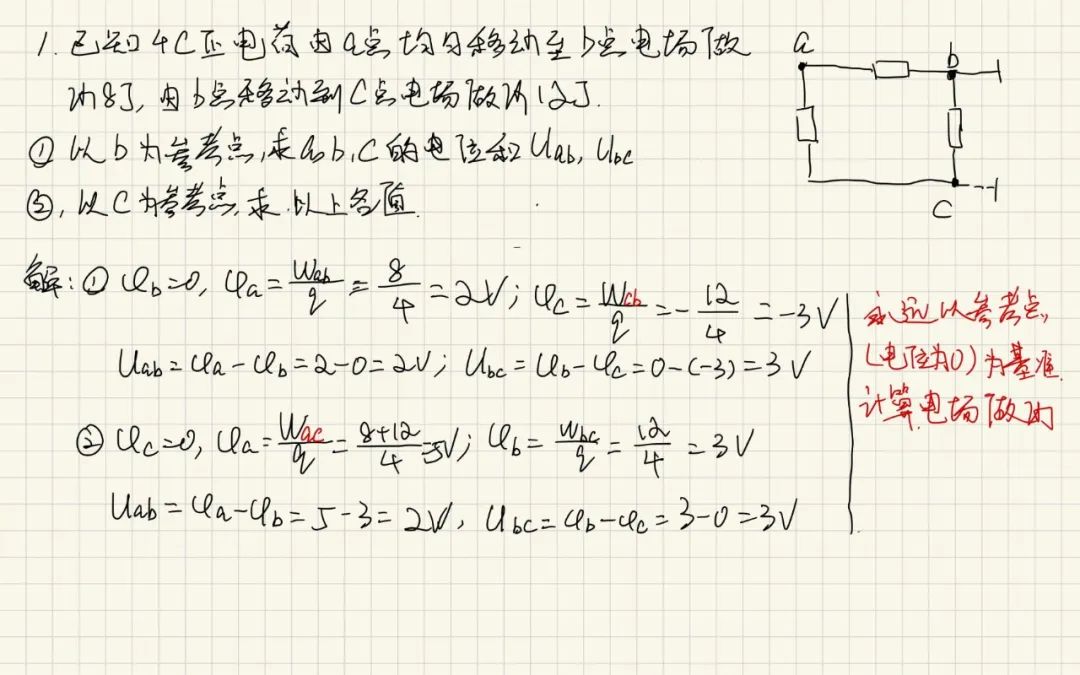 1. 已知4C正电荷由a点均匀移动至b点电场做
功8J, 由b点移动到C点电场做功12J.
① 以b为参考点,求a,b,C的电位和Uab, Ubc
②, 以C为参考点,求.以上各值.
a
b
C
解: ① φb=0, φa=Wab/q=8/4=2V; φc=Wcb/q=-12/4=-3V
Uab=φa-φb=2-0=2V; Ubc=φb-φc=0-(-3)=3V
② φc=0, φa=Wac/q=8+12/4=5V; φb=Wbc/q=12/4=3V
Uab=φa-φb=5-3=2V, Ubc=φb-φc=3-0=3V
永远以参考点,
(电位为0)为基准.
计算电场做功